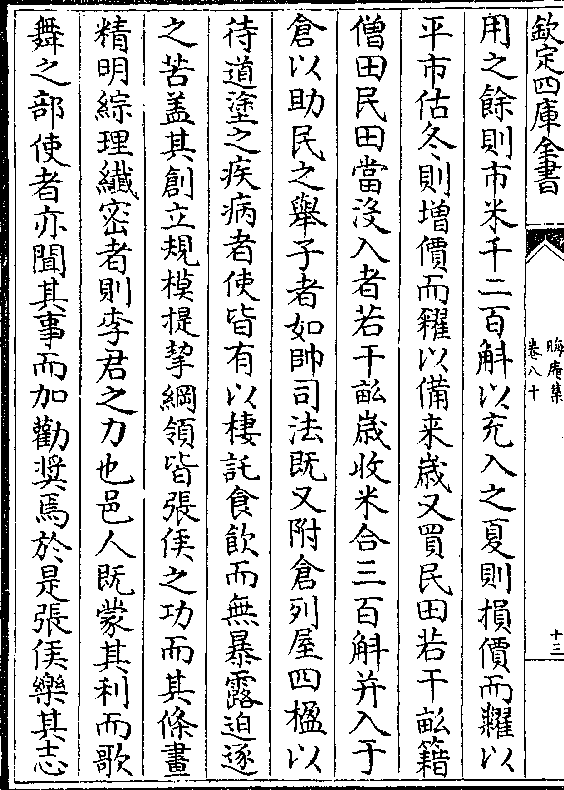 欽定四庫全書
晦庵集
卷八十
十三
用之餘則市米千二百斛以充入之夏則損價而糶以
平市估冬則增價而糴以備来歳又買民田若干畝籍
僧田民田當沒入者若干畝歳收米合三百斛并入于
倉以助民之舉子者如帥司法既又附倉列屋四楹以
待道塗之疾病者使皆有以棲託食飲而無暴露迫逐
之苦盖其創立規模提挈綱領皆張侯之功而其條畫
精明綜理纖密者則李君之力也邑人既蒙其利而歌
舞之部使者亦聞其事而加勸奨焉於是張侯樂其志